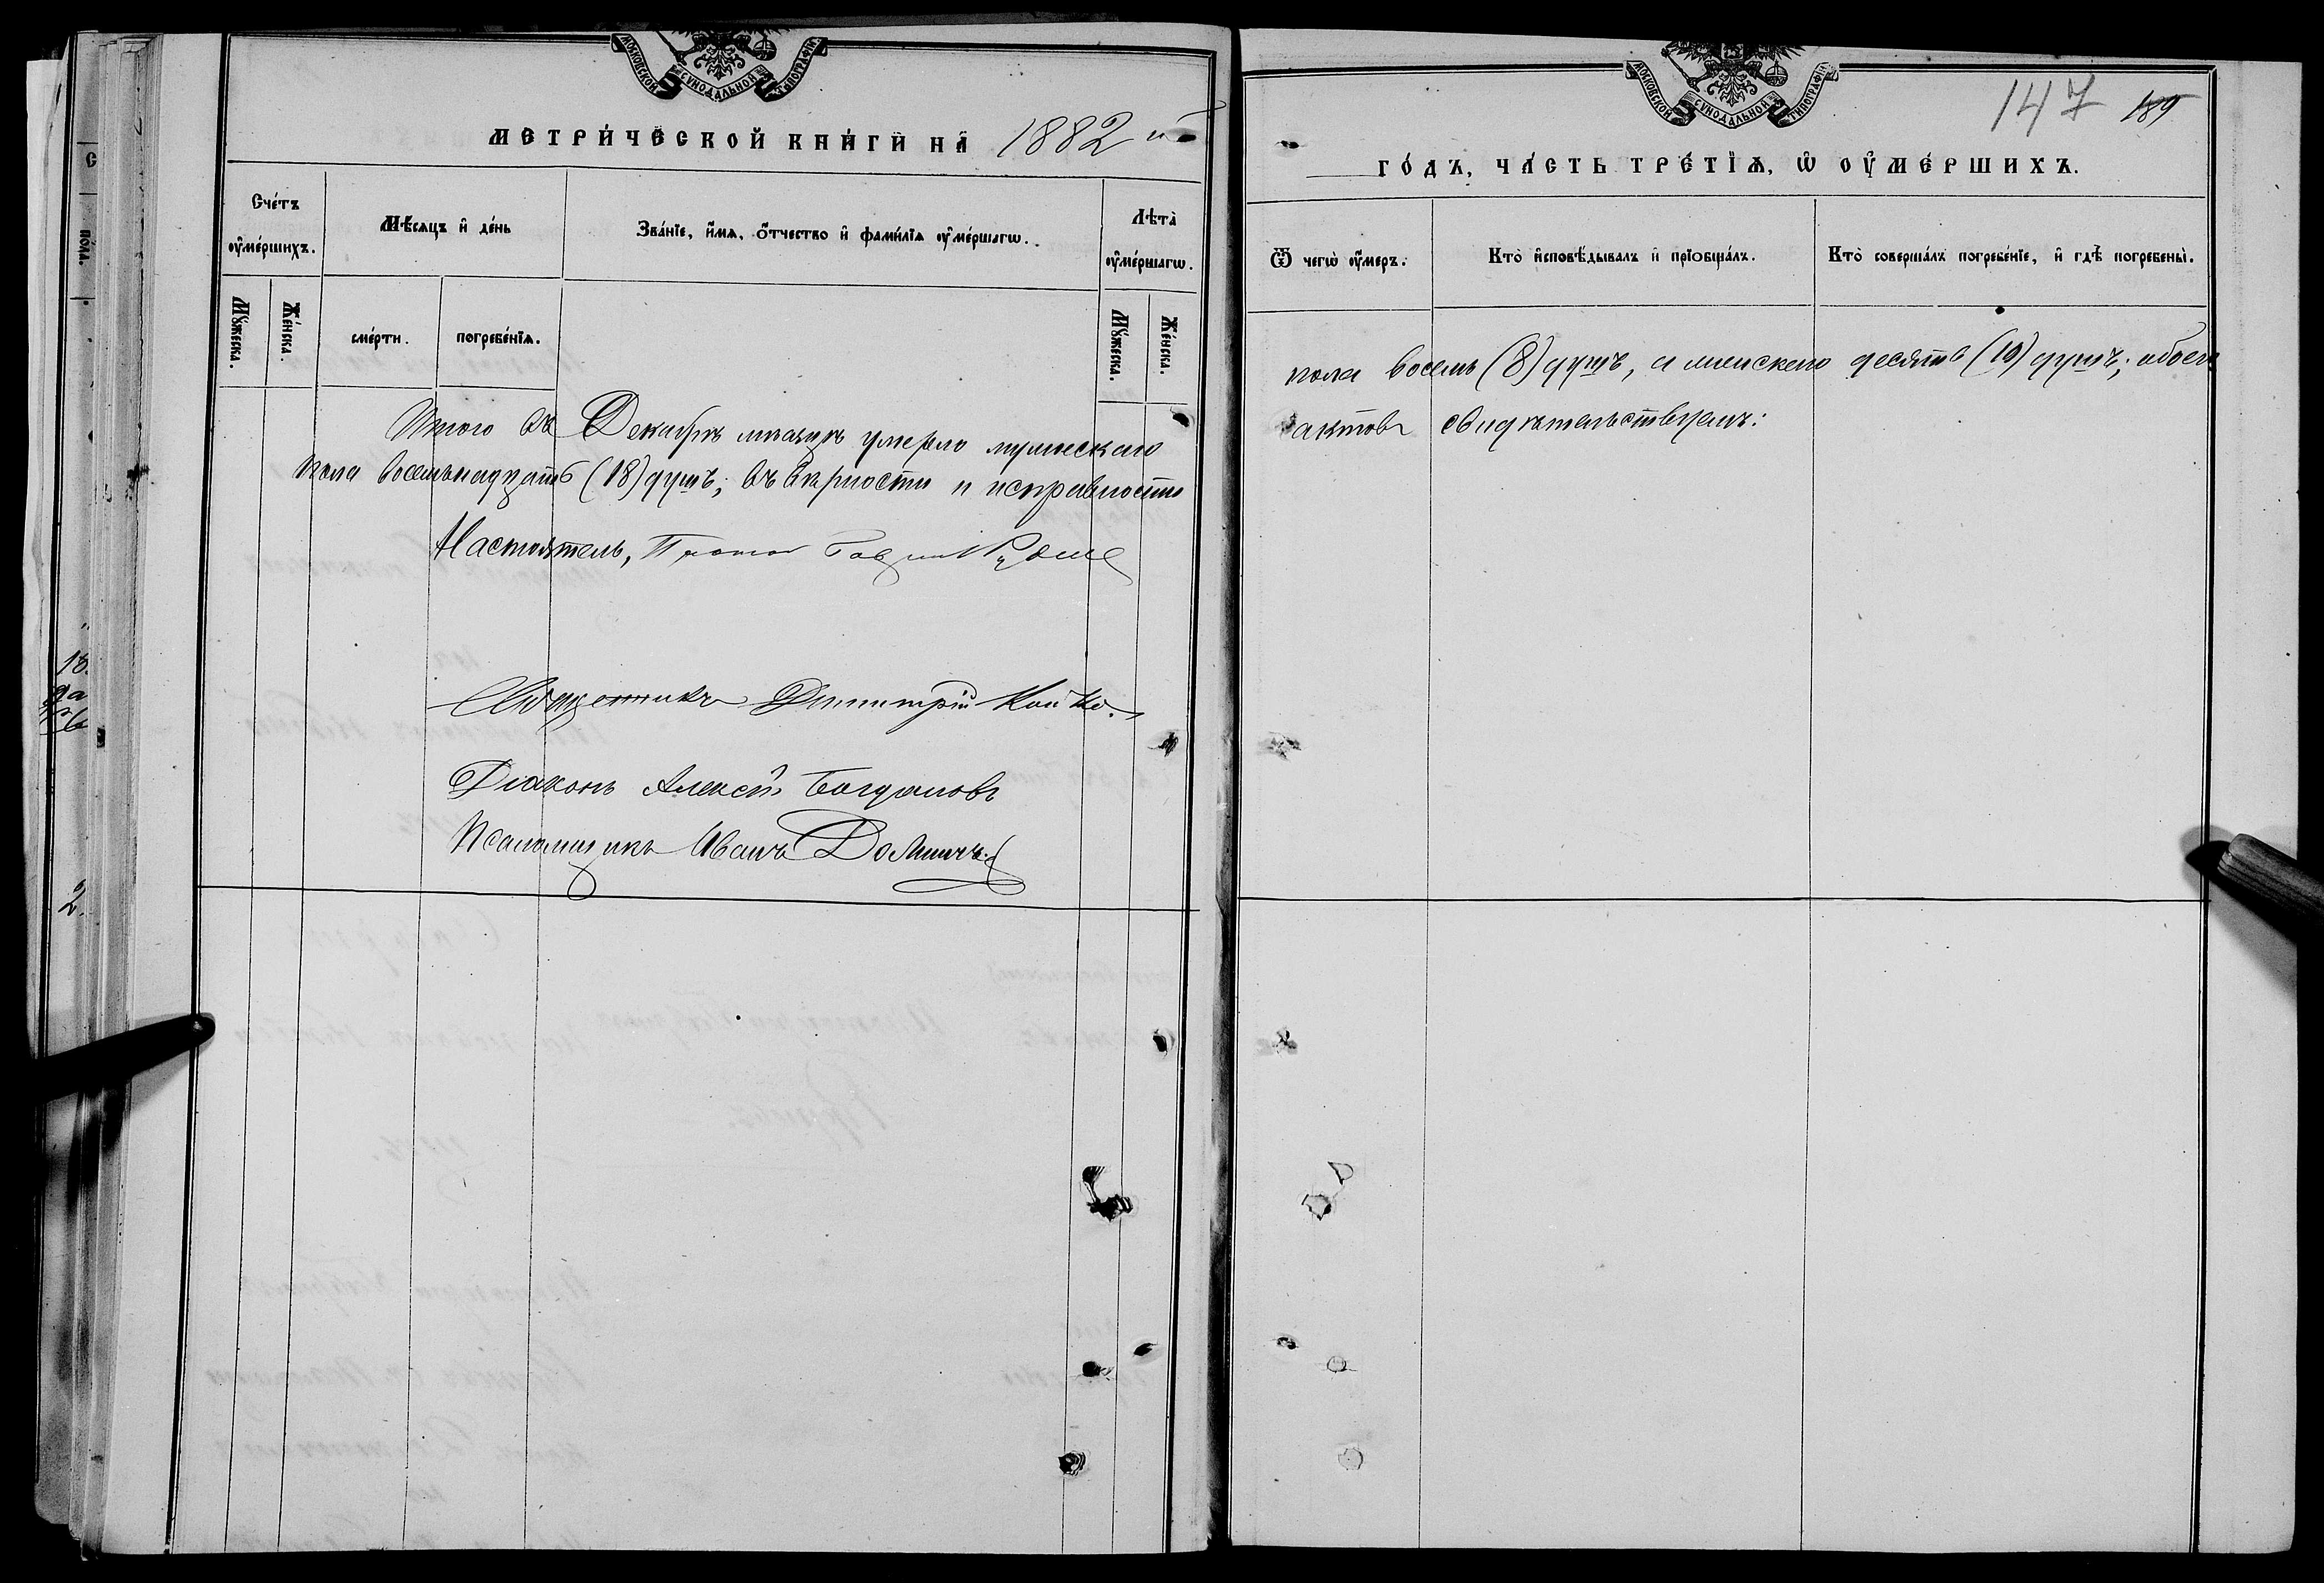 МОСКОВСКОЙ СѴНОДАЛЬНОЙ ТИПОГРАФІИ
МЕТРИ́ЧЕСКОЙ КНИ́ГИ НА 1882 й
Сче́тъ оумершихъ.
Мѣсяцъ и де́нь
Зва́нїе, и́мя, о́тчество и фами́лїя оуме́ршагѡ.
Лѣта̀ оуме́ршагѡ.
Мꙋ́жеска.
Же́нска.
сме́рти.
погребе́нїя.
Мꙋ́жеска.
Же́нска.
Итого въ Декабрѣ мѣсяцѣ умерло мужескаго
пола восемьнадцать (18) душъ; въ вѣрности и исправности
Настоятель,
Священникъ Димитрій
Діаконъ Алексѣй Богдановъ
Псаломщикъ Иванъ
18.
2.
МОСКОВСКОЙ СѴНОДАЛЬНОЙ ТИПОГРАФІИ
147 189
ГО́ДЪ, ЧА́СТЬ ТРЕ́ТЇЯ, Ѡ ОУМЕ́РШИХЪ.
Ѿ чегѡ̀ оу́меръ.
Кто̀ исповѣ́дывалъ и прїобща́лъ.
Кто̀ соверша́лъ погребе́нїе, и гдѣ̀ погребены̀.
пола восемь (8) душъ, а женскаго десять (10) душъ; обоего
актовъ свидѣтельствуемъ: